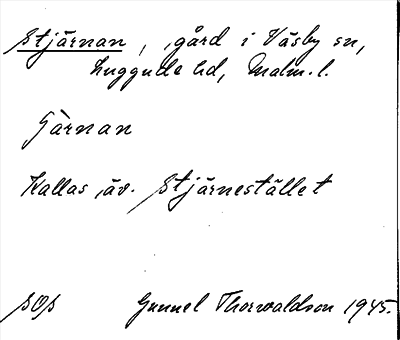 Stjärnan, gård i Väsby sn,
Luggude hd, Malm. l.
Gàrnan
Kallas äv. Stjärnestället
SOS Gunnel Thorwaldson 1945.